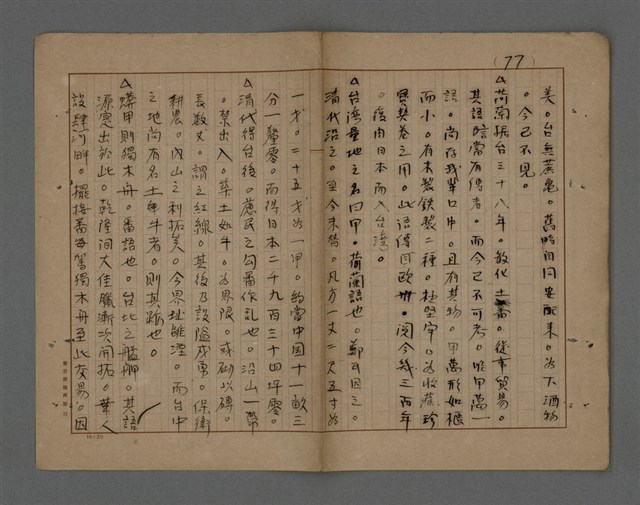 (77)
美。台無蔗龜。舊時自同安配來。為下酒物
。今已不見。
△荷蘭據台三十八年。教化土番。從事貿易。
其語當有傳者。而今已不可考。唯甲萬一
語。尚存我輩口中。且有其物。甲萬形如櫃
而小。有木製鉄製二種。極堅牢。為收藏珍
寶契卷之用。此語傳自欧州。閱今幾三百年
。後由日本而入台湾。
△台湾量地之名曰甲。荷蘭語也。鄭氏因之。
清代沿之。至今未替。凡方一丈二尺五寸為
一戈。二十五戈為一甲。約當中国十一畝三
分一釐零。而得日本二千九百三十四坪零。
△清代得台後。慮民之勾番作乱也。沿山一帶
。禁出入。築土如牛。為界限。或砌以磚。
長数丈。謂之紅線。其後乃設隘戍勇。保衛
耕農。內山之利拓矣。今界址雖湮。而台中
之地尚有名土牛者。則其跡也。
△艋甲則獨木舟。番語也。台北之艋舺。其語
源実出於此。乾隆間大佳臘漸次開拓。華人
設肆河畔。擺接番每駕獨木舟至此交易。因